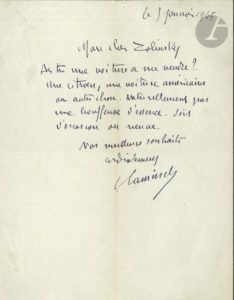 le 3 janvier 1945
Mon cher Zolinsky
As tu une voiture à me vendre ?
Une Citroen, une voiture américaine
ou autre chose. Naturellement pas
une bouffeuse d'essence. Soit
d'occasion ou neuve.
Vos meilleurs souhaits
cordialement
Vlaminck